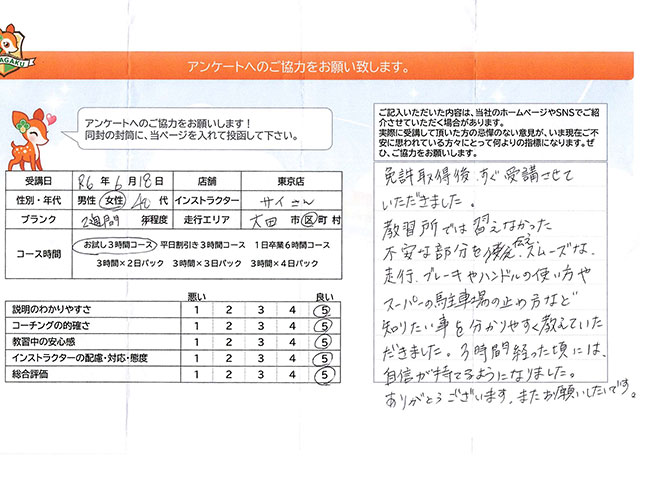 AGAKU
アンケートへのご協力をお願い致します。
アンケートへのご協力をお願いします！
同封の封筒に、当ページを入れて投函して下さい。
ご記入いただいた内容は、当社のホームページやSNSでご紹
介させていただく場合があります。
実際に受講して頂いた方の忌憚のない意見が、いま現在ご不
安に思われている方々にとって何よりの指標になります。ぜ
ひ、ご協力をお願いします。
受講日 R6 年 6 月 18 日 店舗 東京店
性別・年代 男性 女性 40 代 インストラクター サイさん
ブランク 2週間 年程度 走行エリア 大田 市 区 町 村
コース時間 お試し3時間コース 平日割引き3時間コース 1日卒業6時間コース
3時間×2日パック 3時間×3日パック 3時間×4日パック
悪い 良い
説明のわかりやすさ 1 2 3 4 5
コーチングの的確さ 1 2 3 4 5
教習中の安心感 1 2 3 4 5
インストラクターの配慮・対応・態度 1 2 3 4 5
総合評価 1 2 3 4 5
免許取得後、すぐ受講させて
いただきました。
教習所では習えなかった
不安な部分を 伝え、スムーズな
走行、ブレーキやハンドルの使い方や
スーパーの駐車場の止め方など
知りたい事を分かりやすく教えていた
だきました。3時間経った頃には、
自信が持てるようになりました。
ありがとうございます。またお願いしたいです。